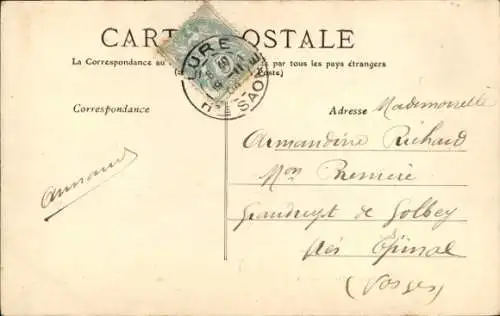 CARTE POSTALE
La Correspondance au par tous les pays étrangers
Poste)
LURE
Hte SAONE
Correspondance
Adresse
Mademoiselle
Armandine Richard
Mon Première
de Golbey
près Epinal
(Vosges)
Armand